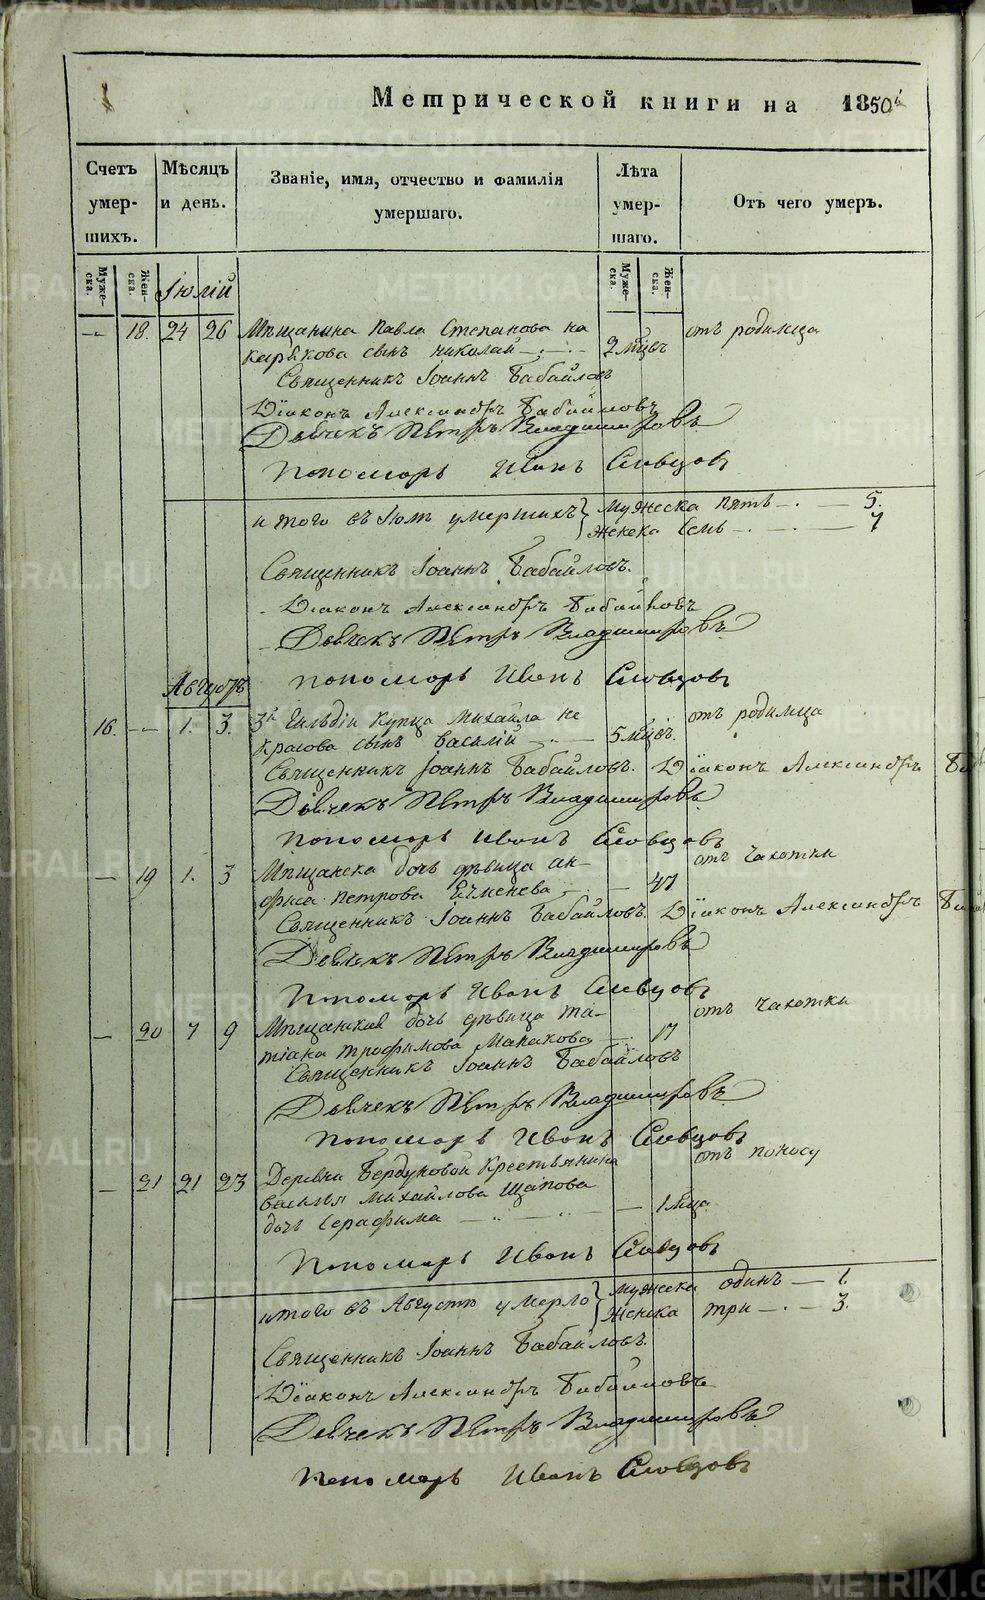 Метрической книги на 1850й
Счетъ умер- шихъ.
Мѣсяцъ и день.
Званіе, имя, отчество и фамилія умершаго.
Лѣта умер- шаго.
Отъ чего умеръ.
Муже- ска.
Жен- ска.
Муже- ска.
Жен- ска.
Іюлій
— 18. 24 26 Мѣщанина Павла Степанова на 2 мцъ отъ родимца
сынъ Николай
Священникъ Іоаннъ Бабайловъ
Діаконъ Александръ Бабайловъ
Дьячекъ Петръ Владимировъ
Пономарь Иванъ Словцовъ
итого въ Іюлѣ умершихъ } мужеска пять — 5.
женска семь — 7
Священникъ Іоаннъ Бабайловъ.
Діаконъ Александръ Бабайловъ
Дьячекъ Петръ Владимировъ
Пономарь Иванъ Словцовъ
Августъ
16. — 1. 3. 3й Гильдіи Купца Михайла не 5 мцъ. отъ родимца
красова сынъ Василій
Священникъ Іоаннъ Бабайловъ. Діаконъ Александръ
Дьячекъ Петръ Владимировъ
Пономарь Иванъ Словцовъ
— 19 1. 3 Мѣщанска дочь дѣвица ан- отъ чахотки
фиса Петрова Ячменева — 47
Священникъ Іоаннъ Бабайловъ. Діаконъ Александръ
Дьячекъ Петръ Владимировъ
Пономарь Иванъ Словцовъ
— 20 7 9 Мѣщанская дочь дѣвица та- отъ чахотки
тіана Трофимова Макакова 17
Священникъ Іоаннъ Бабайловъ
Дьячекъ Петръ Владимировъ
Пономарь Иванъ Словцовъ
— 21 21 23 Деревни Бердюковой Крестьянина отъ поносу
Василья Михайлова Щапова
дочь Серафима — 1 мца
Пономарь Иванъ Словцовъ
итого въ Августѣ умерло } мужеска одинъ — 1.
женска три — 3.
Священникъ Іоаннъ Бабайловъ.
Діаконъ Александръ Бабайловъ
Дьячекъ Петръ Владимировъ
Пономарь Иванъ Словцовъ
METRIKI.GASO-URAL.RU